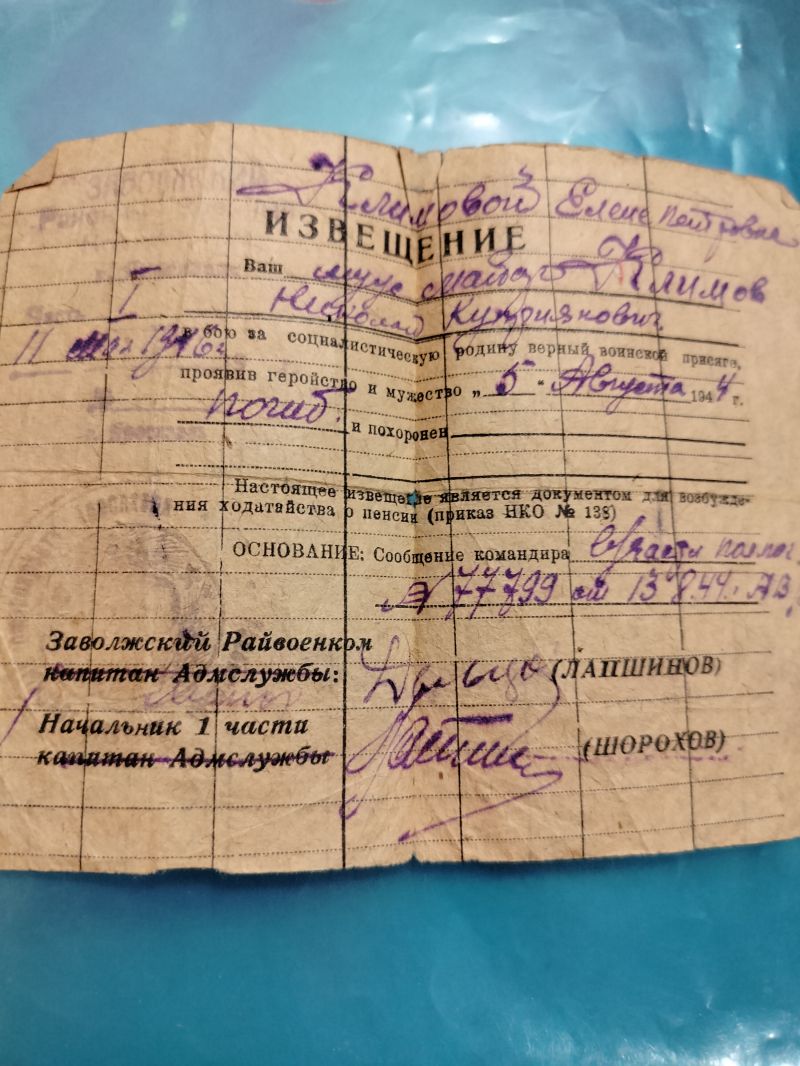 Климовой Елене Петровне
ИЗВЕЩЕНИЕ
Ваш муж майор Климов
I Николай Куприянович
11 мая 1946 г. в бою за социалистическую родину верный воинской присяге,
проявив геройство и мужество „ 5 “ Августа 1944 г.
погиб. и похоронен
Настоящее извещение является документом для возбужде-
ния ходатайства о пенсии (приказ НКО № 138)
ОСНОВАНИЕ: Сообщение командира в/части
№ 77799 от 13.8.44.
Заволжский Райвоенком
капитан Адмслужбы: (ЛАПШИНОВ)
Начальник 1 части
капитан Адмслужбы (ШОРОХОВ)